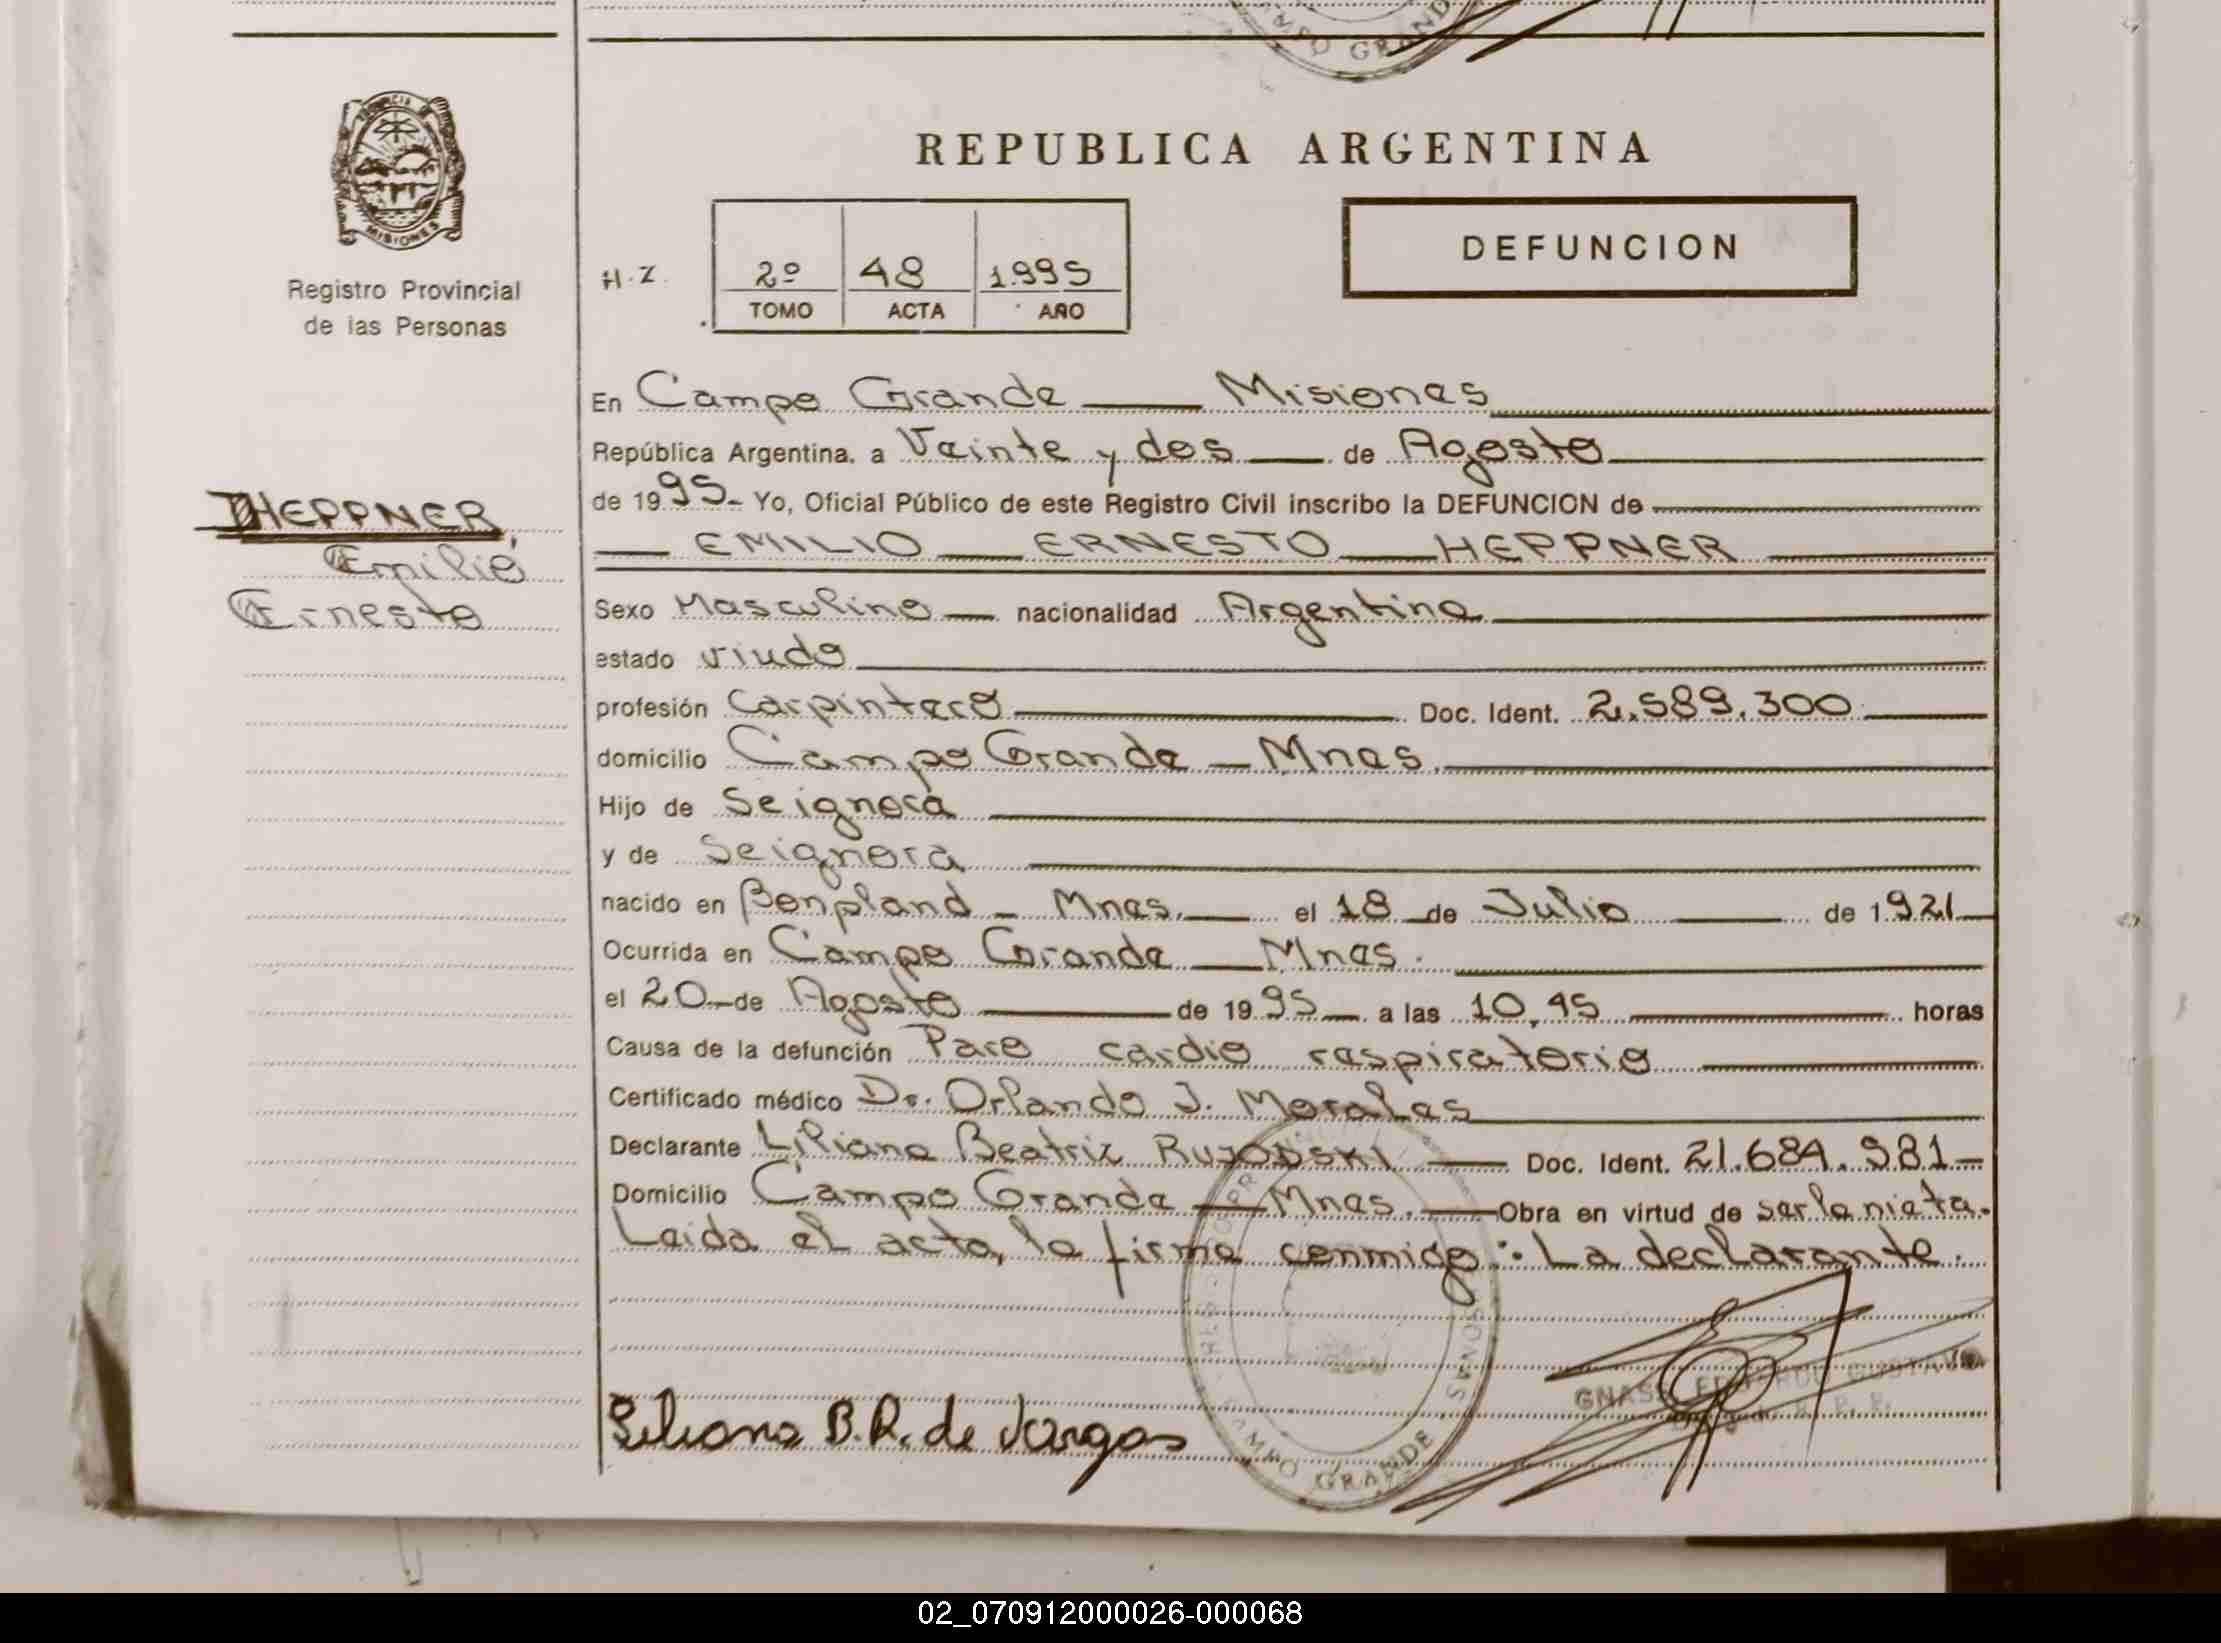 CAMPO GRAND
PROVINCIA DE
MISIONES
Registro Provincial
de las Personas
REPUBLICA ARGENTINA
H.Z. 2º 48 1.995
TOMO ACTA AÑO
DEFUNCION
En Campo Grande Misiones
República Argentina, a Veinte y dos de Agosto
de 1995- Yo, Oficial Público de este Registro Civil inscribo la DEFUNCION de
EMILIO ERNESTO HEPPNER
HEPPNER,
Emilio
Ernesto
Sexo Masculino nacionalidad Argentina
estado viudo
profesión Carpintero Doc. Ident. 2.589.300
domicilio Campo Grande - Mnes.
Hijo de Seignora
y de Seignora
nacido en Bonpland - Mnes. el 18 de Julio de 1921
Ocurrida en Campo Grande - Mnes.
el 20 de Agosto de 1995 a las 10,45 horas
Causa de la defunción Paro cardio respiratorio
Certificado médico Dr. Orlando J. Morales
Declarante Liliana Beatriz Doc. Ident. 21.684.981
Domicilio Campo Grande - Mnes. Obra en virtud de ser la nieta.
Leida el acta, la firma conmigo: La declarante.
GNASS, EDUARDO GUSTAVO
Liliana B.R. de Vargas
CAMPO GRANDE
02_070912000026-000068